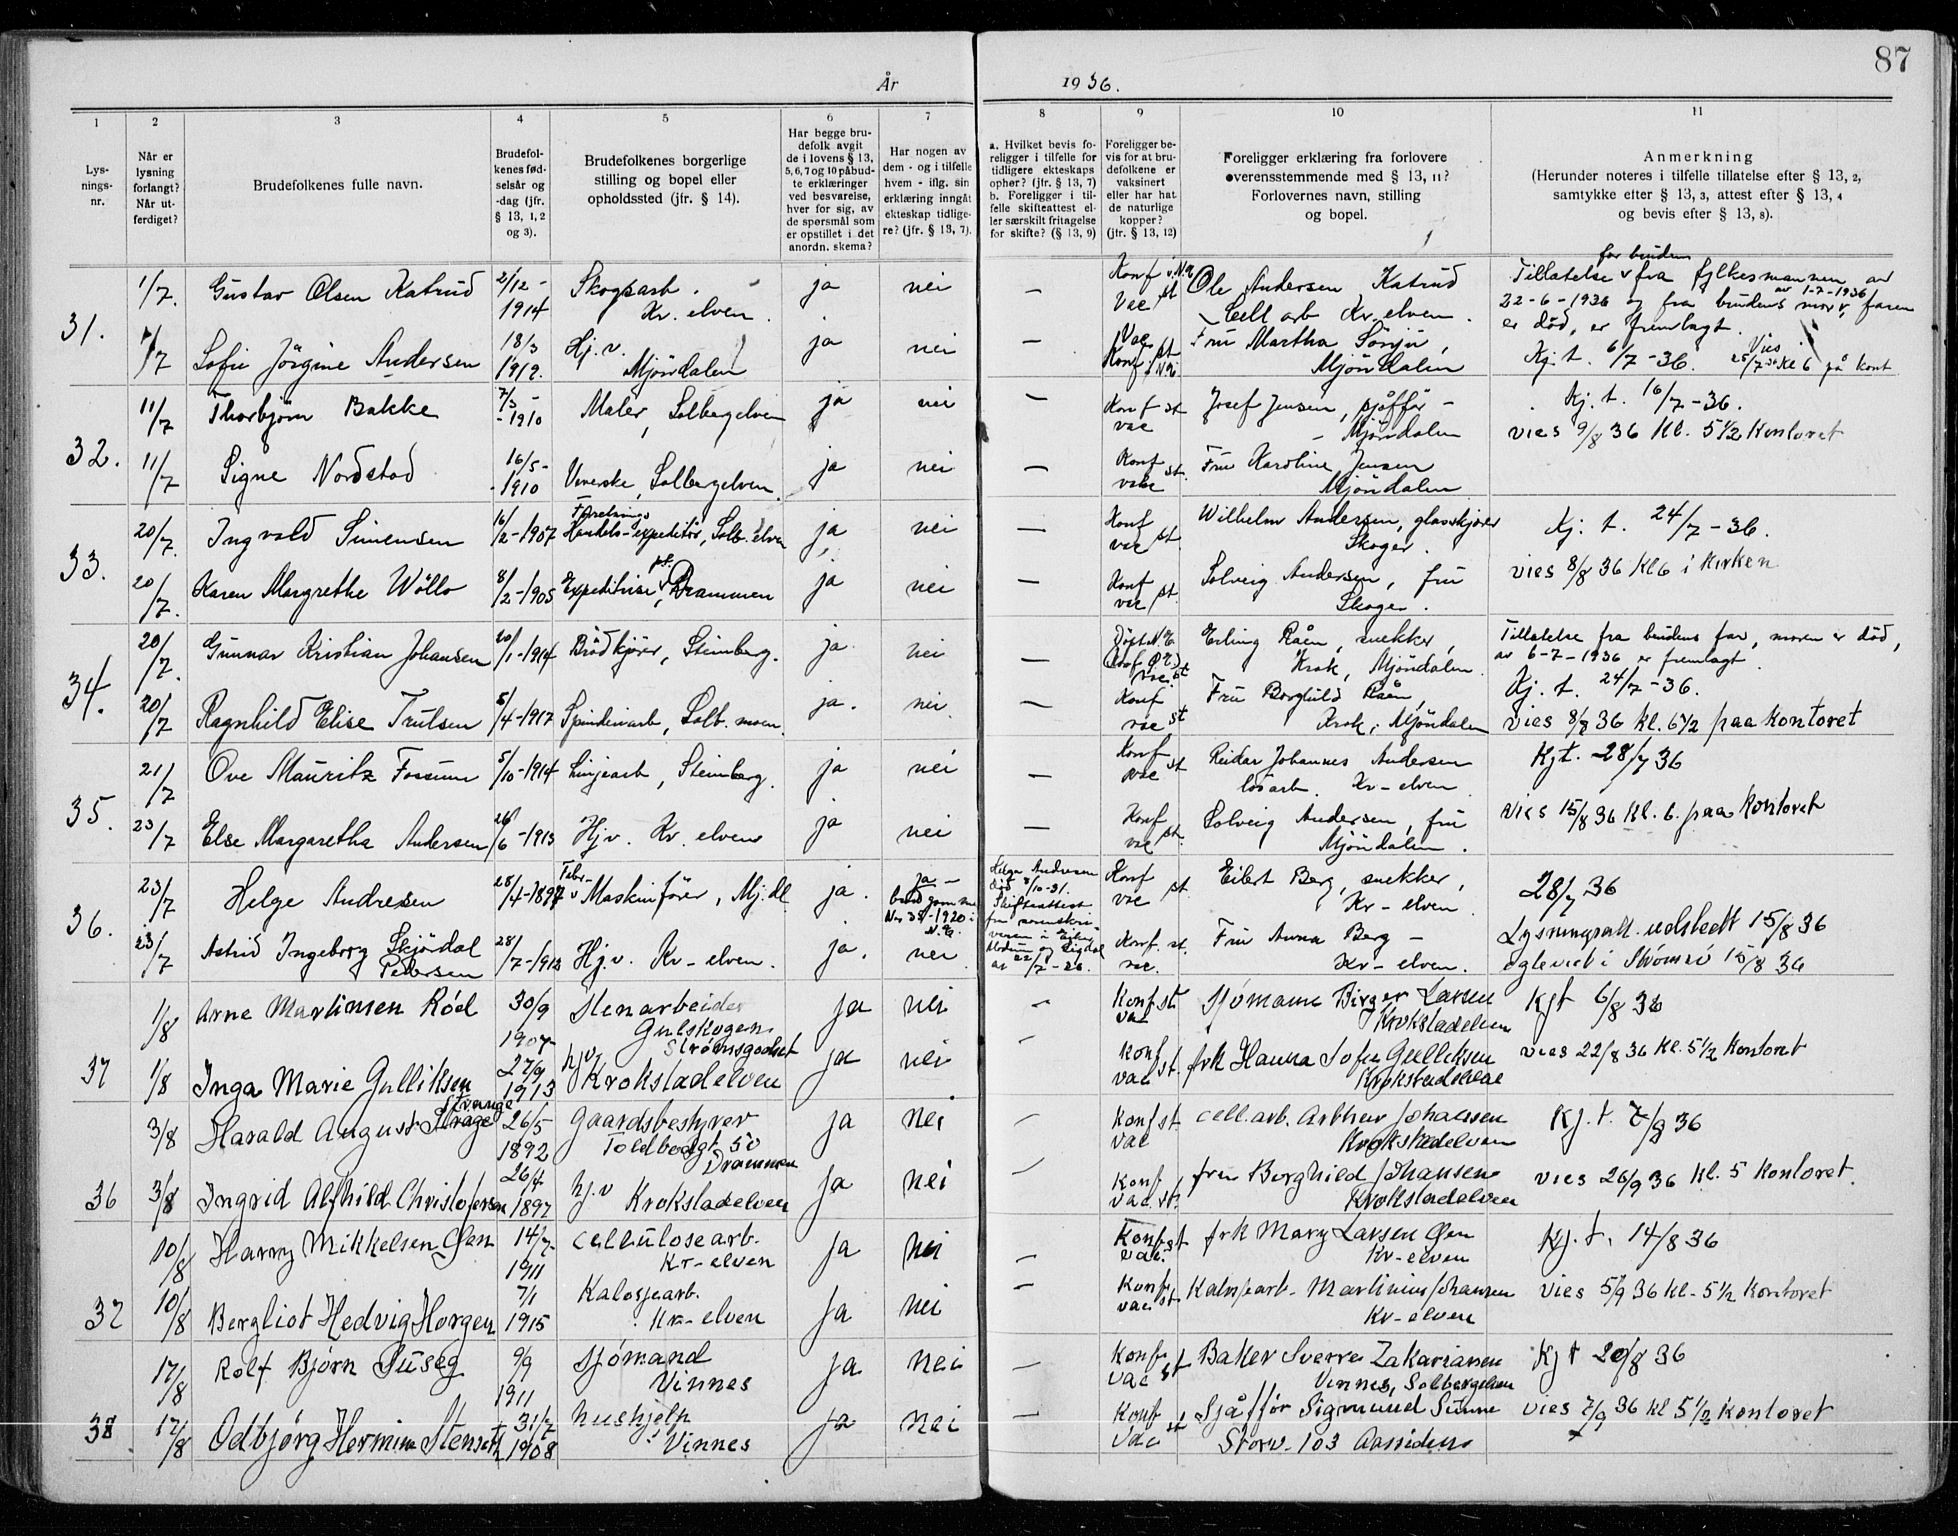 87
År 1936.
1 2 3 4 5 6 7 8 9 10 11
Lys-
nings-
nr.
Når er
lysning
forlangt?
Når ut-
ferdiget?
Brudefolkenes fulle navn.
Brudefol-
kenes fød-
selsår og
-dag (jfr.
§ 13, 1, 2
og 3).
Brudefolkenes borgerlige
stilling og bopel eller
opholdssted (jfr. § 14).
Har begge bru-
defolk avgit
de i lovens § 13,
5, 6, 7 og 10 påbud-
te erklæringer
ved besvarelse,
hver for sig, av
de spørsmål som
er opstillet i det
anordn. skema?
Har nogen av
dem - og i tilfelle
hvem - iflg. sin
erklæring inngått
ekteskap tidlige-
re? (jfr. § 13, 7).
a. Hvilket bevis fo-
religger i tilfelle for
tidligere ekteskaps
ophør? (jfr. § 13, 7)
b. Foreligger i til-
felle skifteattest el-
ler særskilt fritagelse
for skifte? (§ 13, 9)
Foreligger be-
vis for at bru-
defolkene er
vaksinert
eller har hat
de naturlige
kopper?
(jfr. § 13, 12)
Foreligger erklæring fra forlovere
overensstemmende med § 13, 11?
Forlovernes navn, stilling
og bopel.
Anmerkning
(Herunder noteres i tilfelle tillatelse efter § 13, 2,
samtykke efter § 13, 3, attest efter § 13, 4
og bevis efter § 13, 8).
31. 1/7. Gustav Olsen Katrud 2/12 - 1914 Skogsarb. Kr. elven. ja nei — Konf v. N.E. Vac st Ole Andersen Katrud
Cell arb Kr. elven.
Tillatelse for bruden fra fylkesmannen av
22-6-1936 og fra brudens mor av 1-7-1936, faren
er død, er fremlagt.
1/7 Sofie Jörgine Andersen 18/3 1919. Hj. v. Mjöndalen ja nei — Vac st Konf i N.E. Fru Martha Sörju,
Mjöndalen
Kj. t. 6/7 - 36. Vies 25/7 36 kl 6 på kont
32. 11/7 Thorbjörn Bakke 7/3 - 1910 Maler, Solbergelven ja nei — Konf st vac Josef Jensen, sjåffør -
Mjöndalen
Kj. t. 16/7 - 36.
vies 9/8 36 kl. 5 1/2 Kontoret
11/7 Signe Nordstad 16/5 - 1910 Veverske, Solbergelven. ja nei — Konf vac st. Fru Karoline Jensen
Mjöndalen
33. 20/7. Ingvald Simensen 16/2 - 1907 Forretnings Handels-expeditör, Solb. elven ja nei — Konf vac st. Wilhelm Andersen, glasskjører
Skoger.
Kj. t. 24/7 - 36.
20/7. Karen Margrethe Wöllo 8/2 - 1905 Expeditrise, Drammen ja nei — Konf vac st. Solveig Andersen, fru
Skoger.
vies 8/8 36 Kl 6 i Kirken
34. 20/7. Gunnar Kristian Johansen 20/1 - 1914 Brödkjörer, Steinberg. ja nei — Döpt N.E. vac. st Erling Råen, snekker,
Krok, Mjöndalen
Tillatelse fra brudens far, moren er død,
av 6-7-1936 er fremlagt.
Kj. t. 24/7 - 36.
20/7 Ragnhild Elise Trulsen 5/4 - 1917 Spinderiarb, Solb. moen. ja. nei — Konf vac st Fru Borghild Råen,
Krok, Mjöndalen
vies 8/8 36 kl. 6 1/2 paa Kontoret
35. 21/7 Ove Mauritz Fossum 5/10 - 1914 Linjearb, Steinberg. ja nei — Konf vac st Reidar Johannes Andersen
lösarb. Kr-elven
Kjt. 28/7 36
23/7 Else Margaretha Andersen 26/6 - 1913 Hjv. Kr. elven ja nei — Konf vac st. Solveig Andersen, fru
Mjöndalen.
vies 15/8 36 kl. 6. paa Kontoret
36. 23/7 Helge Andresen 28/4 - 1897 Maskinförer, Mj.dl ja. ja -
Nr 38 - 1920 i N.E.
Helga Andresen
död 8/10-31.
Skifteattest
fra sorenskri-
veren i Eiker,
Modum og Sigdal
av 22/7 - 36.
Konf vac st Eilert Berg, snekker,
Kr-elven
28/7 36
23/7 Astrid Ingeborg Skjördal Pedersen 28/7 - 1913 Hj.v. Kr-elven. ja. nei Konf. st. vac. Fru Anna Berg -
Kr-elven.
Lysningsatt. udstedt 15/8 36
egteviet i Strømsö 15/8 36
37 1/8 Arne Martinsen Röd 30/9 1907 Stenarbeider
Gulskogen
Strömsgodset
ja nei — Konf st vac Sjömann Birger Larsen
Krokstadelven
Kjt 6/8 36
1/8 Inga Marie Gulliksen 27/9 1913 hjv Krokstadelven ja nei — Konf vac st. frk Hanna Sofie Gulliksen
Krokstadelven
vies 22/8 36 kl. 5 1/2 Kontoret
36 3/8 Harald August Strange 26/5 1892 Gaardsbestyrer
Toldbodgt 50
Drammen
ja nei — Konf st vac cell. arb. Arthur Johansen
Krokstadelven
Kj. t. 7/9 36
3/8 Ingrid Alfhild Christofersen 1897 hj.v Krokstadelven ja nei — Konf vac st. fru Borghild Johansen
Krokstadelven
vies 26/9 36 kl. 5 Kontoret.
37 10/8 Harry Mikkelsen Øen 14/7 1911 cellulosearb.
Kr-elven
ja nei — Konf st vac. frk Mary Larsen Øen
Kr-elven
Kj. t. 14/8 36
10/8 Bergliot Hedvig Horgen 7/1 1915 Kalosjearb.
Kr-elven
ja nei — Konf vac st Kalosjearb. Martinius Johansen
Kr-elven
vies 5/9 36 kl. 5 1/2 Kontoret
38 17/8 Rolf Bjørn Suseg 9/9 1911 Sjömand
Vinnes
ja nei — Konf vac st Baker Sverre Zakariasen
Vinnes, Solbergelven
Kjt 20/8 36
17/8 Odbjörg Hermine Stenseth 31/7 1908 hushjelp
Vinnes
ja nei — Konf vac st Sjåffør Sigmund Sunne
Storv. 103 Aassiden
vies 7/9 36 kl 5 1/2 Kontoret